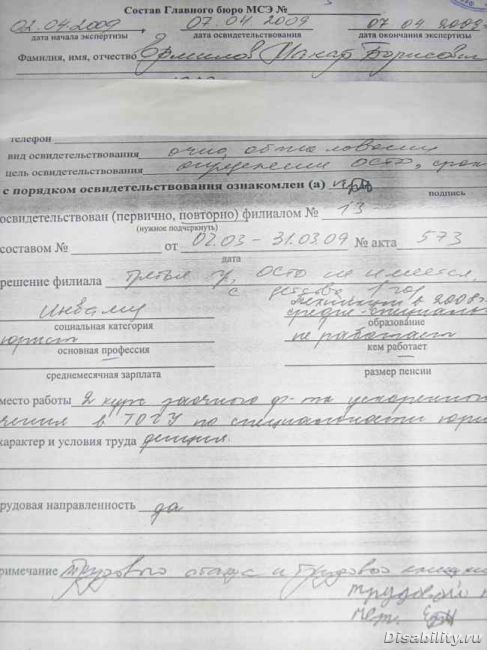 Состав Главного бюро МСЭ №
02.04.2009 07.04.2009 07.04.2009
дата начала экспертизы дата освидетельствования дата окончания экспертизы
Фамилия, имя, отчество Ермилов Макар Борисович
телефон
вид освидетельствования очно, обжалование
цель освидетельствования определение ОСТД, срок
с порядком освидетельствования ознакомлен (а)
подпись
освидетельствован (первично, повторно) филиалом № 13
(нужное подчеркнуть)
составом № от 02.03 - 31.03.09 № акта 573
дата
решение филиала третья гр, ОСТД не имеется,
с детства 1 год
инвалид техникум в 2008 г.
средне-специальн
социальная категория образование
юрист не работает
основная профессия кем работает
среднемесячная зарплата размер пенсии
место работы 2 курс заочного ф-та ускоренного
чения в ТОГУ по специальности юри
характер и условия труда денция
трудовая направленность да
римечание Трудового стажа и трудовой книжки
трудовой
нет.
Disability.ru